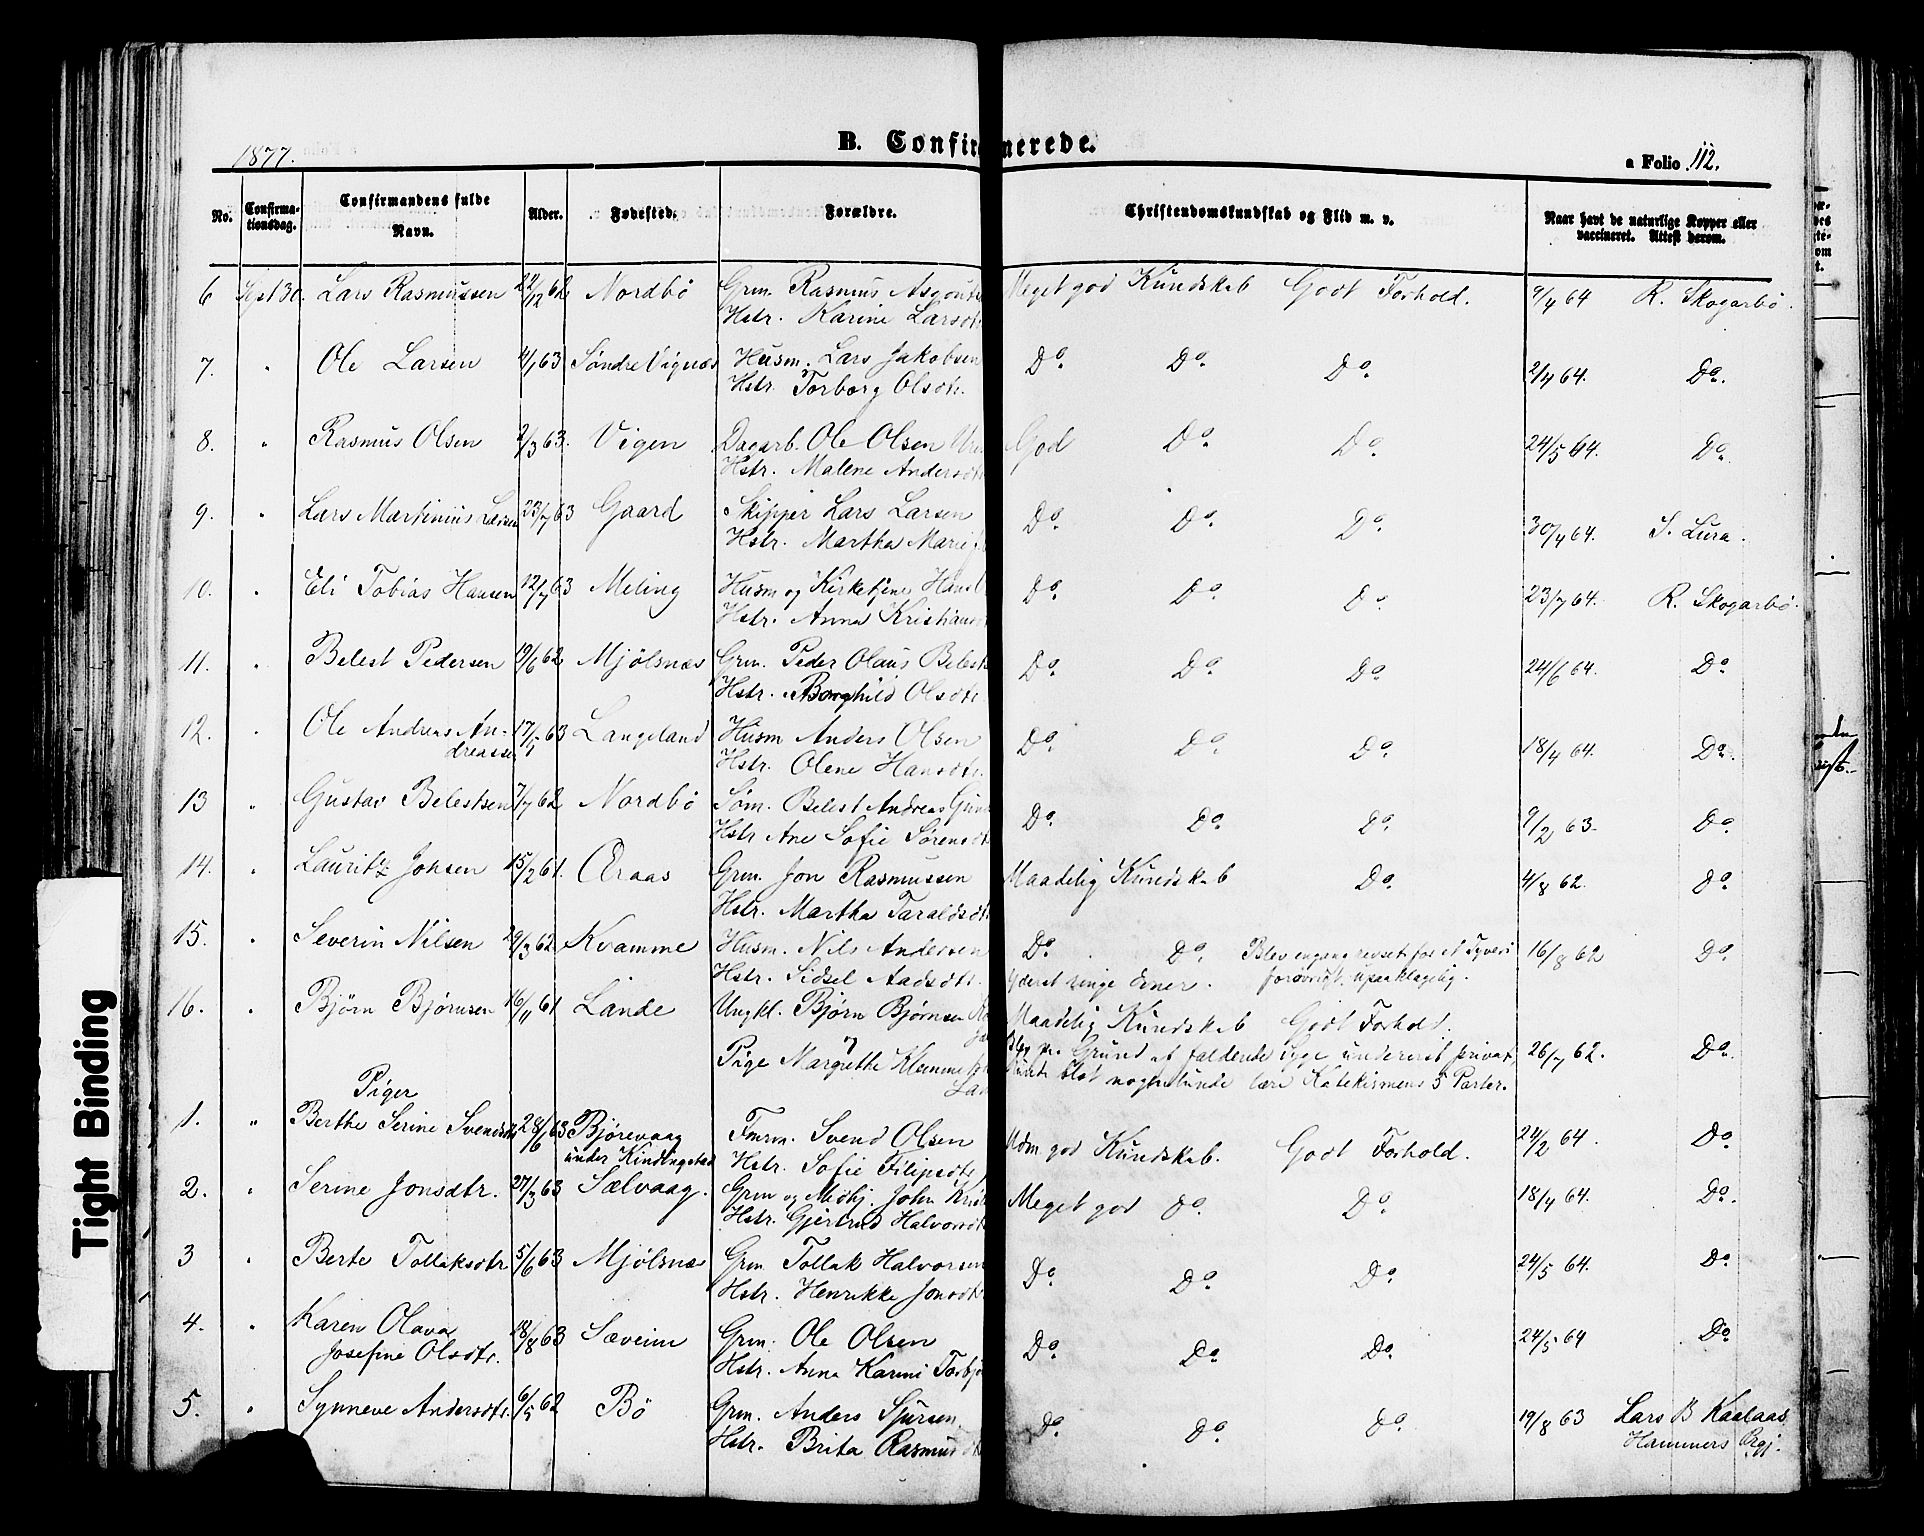 1877.
B. Confirmerede.
a Folio 112.
No. Confirma-tionsdag. Confirmandens fulde Navn. Alder. Fødested. Forældre. Christendomskundskab og Flid m. v. Naar havt de naturlige Kopper eller vaccineret. Attest derom.
6 Sept 30. Lars Rasmussen /12 62 Nordbø Grm. Rasmus Meget god Kundskab Godt Forhold. 9/4 64 R. Skogarbø.
Hstr. Karine Larsdtr
7. " Ole Larsen 4/1 63 Søndre Vignæs Husm. Lars Jakobsen Do. Do. Do. 2/4 64. Do.
Hstr. Torborg Olsdtr.
8. " Rasmus Olsen 2/3 63. Vigen Dagarb. Ole Olsen God Do. Do. 24/5 64. Do.
Hstr. Malene Andersdtr
9. " Lars Martinius Larsen 23/4 63 Gaard Skipper Lars Larsen Do. Do. Do. 30/4 64. S. Lura.
Hstr. Martha Marie
10. " Eli Tobias Hansen 12/7 63 Meling Husm og Kirketjener Hans Do. Do. Do. 23/7 64. R. Skogarbø.
Hstr. Anna
11. " Belest Pedersen 19/6 62 Mjølsnæs Grm. Peder Olaus Belest Do. Do. Do. 24/6 64. Do.
Hstr. Borghild Olsdtr.
12. " Ole Andreas An- 17/ 63 Langeland Husm Anders Olsen Do. Do. Do. 18/4 64. Do.
dreassen Hstr. Olene Hansdtr.
13 " Gustav Belestsen 7/7 62 Nordbø Søm. Belest Andreas Do. Do. Do. 9/2 63. Do.
Hstr Ane Sofie Sørensdtr
14. " Lauritz Johsen 15/2 61. Æraas Grm. Jon Rasmussen Maadelig Kundskab Do. 4/8 62. Do.
Hstr. Martha Taraldsdtr
15. " Severin Nilsen 29/3 62 Kvamme Husm. Nils Andersen Do. Do. Blev engang revset for et Tyveri 16/8 62 Do.
Hstr. Sidsel Aadsdtr. ringe Evner. forøvrigt upaaklagelig.
16. " Bjørn Bjørnsen 16/11 61 Lande Ungkl. Bjørn Bjørnsen Maadelig Kundskab Godt Forhold.
Pige Margrethe Grund af faldende Syge undervist privat, 26/7 62. Do.
blot nogenlunde lære Katekismens 5 Parter.
Piger
1. " Berthe Serine Svendsdtr 28/6 63 Bjørevaag Fmrm. Svend Olsen Udm god Kundskab. Godt Forhold. 24/2 64. Do.
under Kindingstad Hstr. Sofie Filipsdtr
2. " Serine Jonsdtr. 27/3 63 Sælvaag. Grm og Medhj. John Meget god Do. Do. 18/4 64. Do.
Hstr. Gjertrud Halvorsdtr
3 " Berte Tollaksdtr 5/6 63 Mjølsnæs Grm. Tollak Halvorsen Do. Do. Do. 24/5 64. Do.
Hstr. Henrikke Jonsdtr
4. " Karen Olava 18/8 63 Sæveim Grm. Ole Olsen Do. Do. Do. 24/5 64 Do.
Josefine Olsdtr. Hstr. Anna Karini Torbj
5. " Synneve Andersdtr. 6/5 62 Bø Grm. Anders Sjursen Do. Do. Do. 19/8 63 Lars B Kaalaas
Hstr. Brita Rasmusdtr Hammers Prgj.
Tight Binding